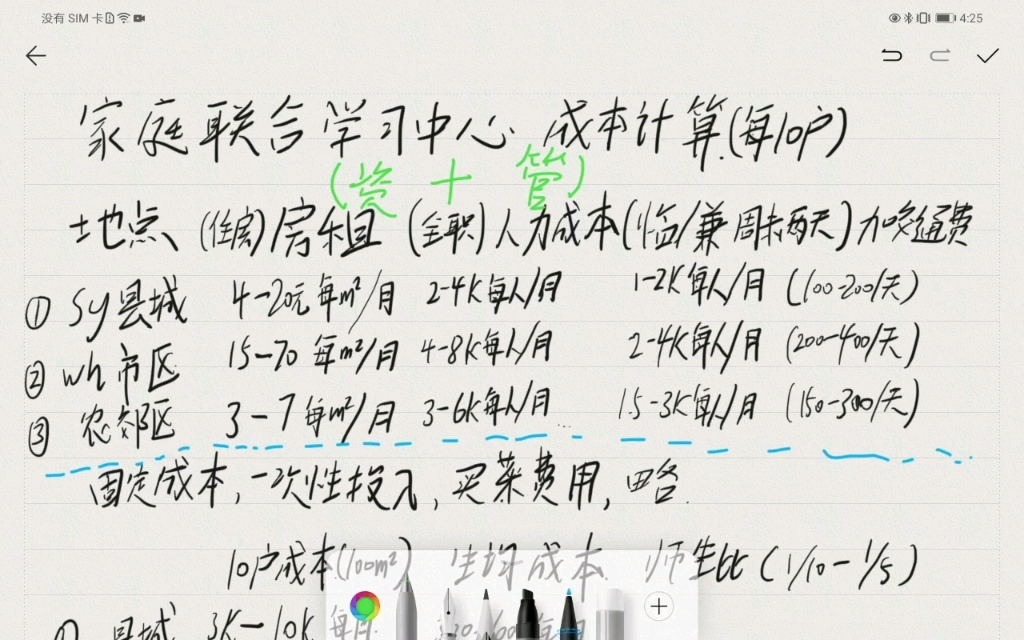 没有 SIM 卡 4:25
家庭联合学习中心 成本计算(每10户)
(资 + 管)
地点 (住房)房租 (全职)人力成本(临/兼 周末两天)加交通费
① sy县城 4-20元每m²/月 2-4K每人/月 1-2K每人/月 (100-200/天)
② wh市区 15-70 每m²/月 4-8K每人/月 2-4K每人/月 (200-400/天)
③ 农郊区 3-7每m²/月 3-6K每人/月 1.5-3K每人/月 (150-300/天)
固定成本,一次性投入,买菜费用,略.
10户成本(100m²) 生均成本 师生比(1/10-1/5)
① 县城 3K-10K 每月